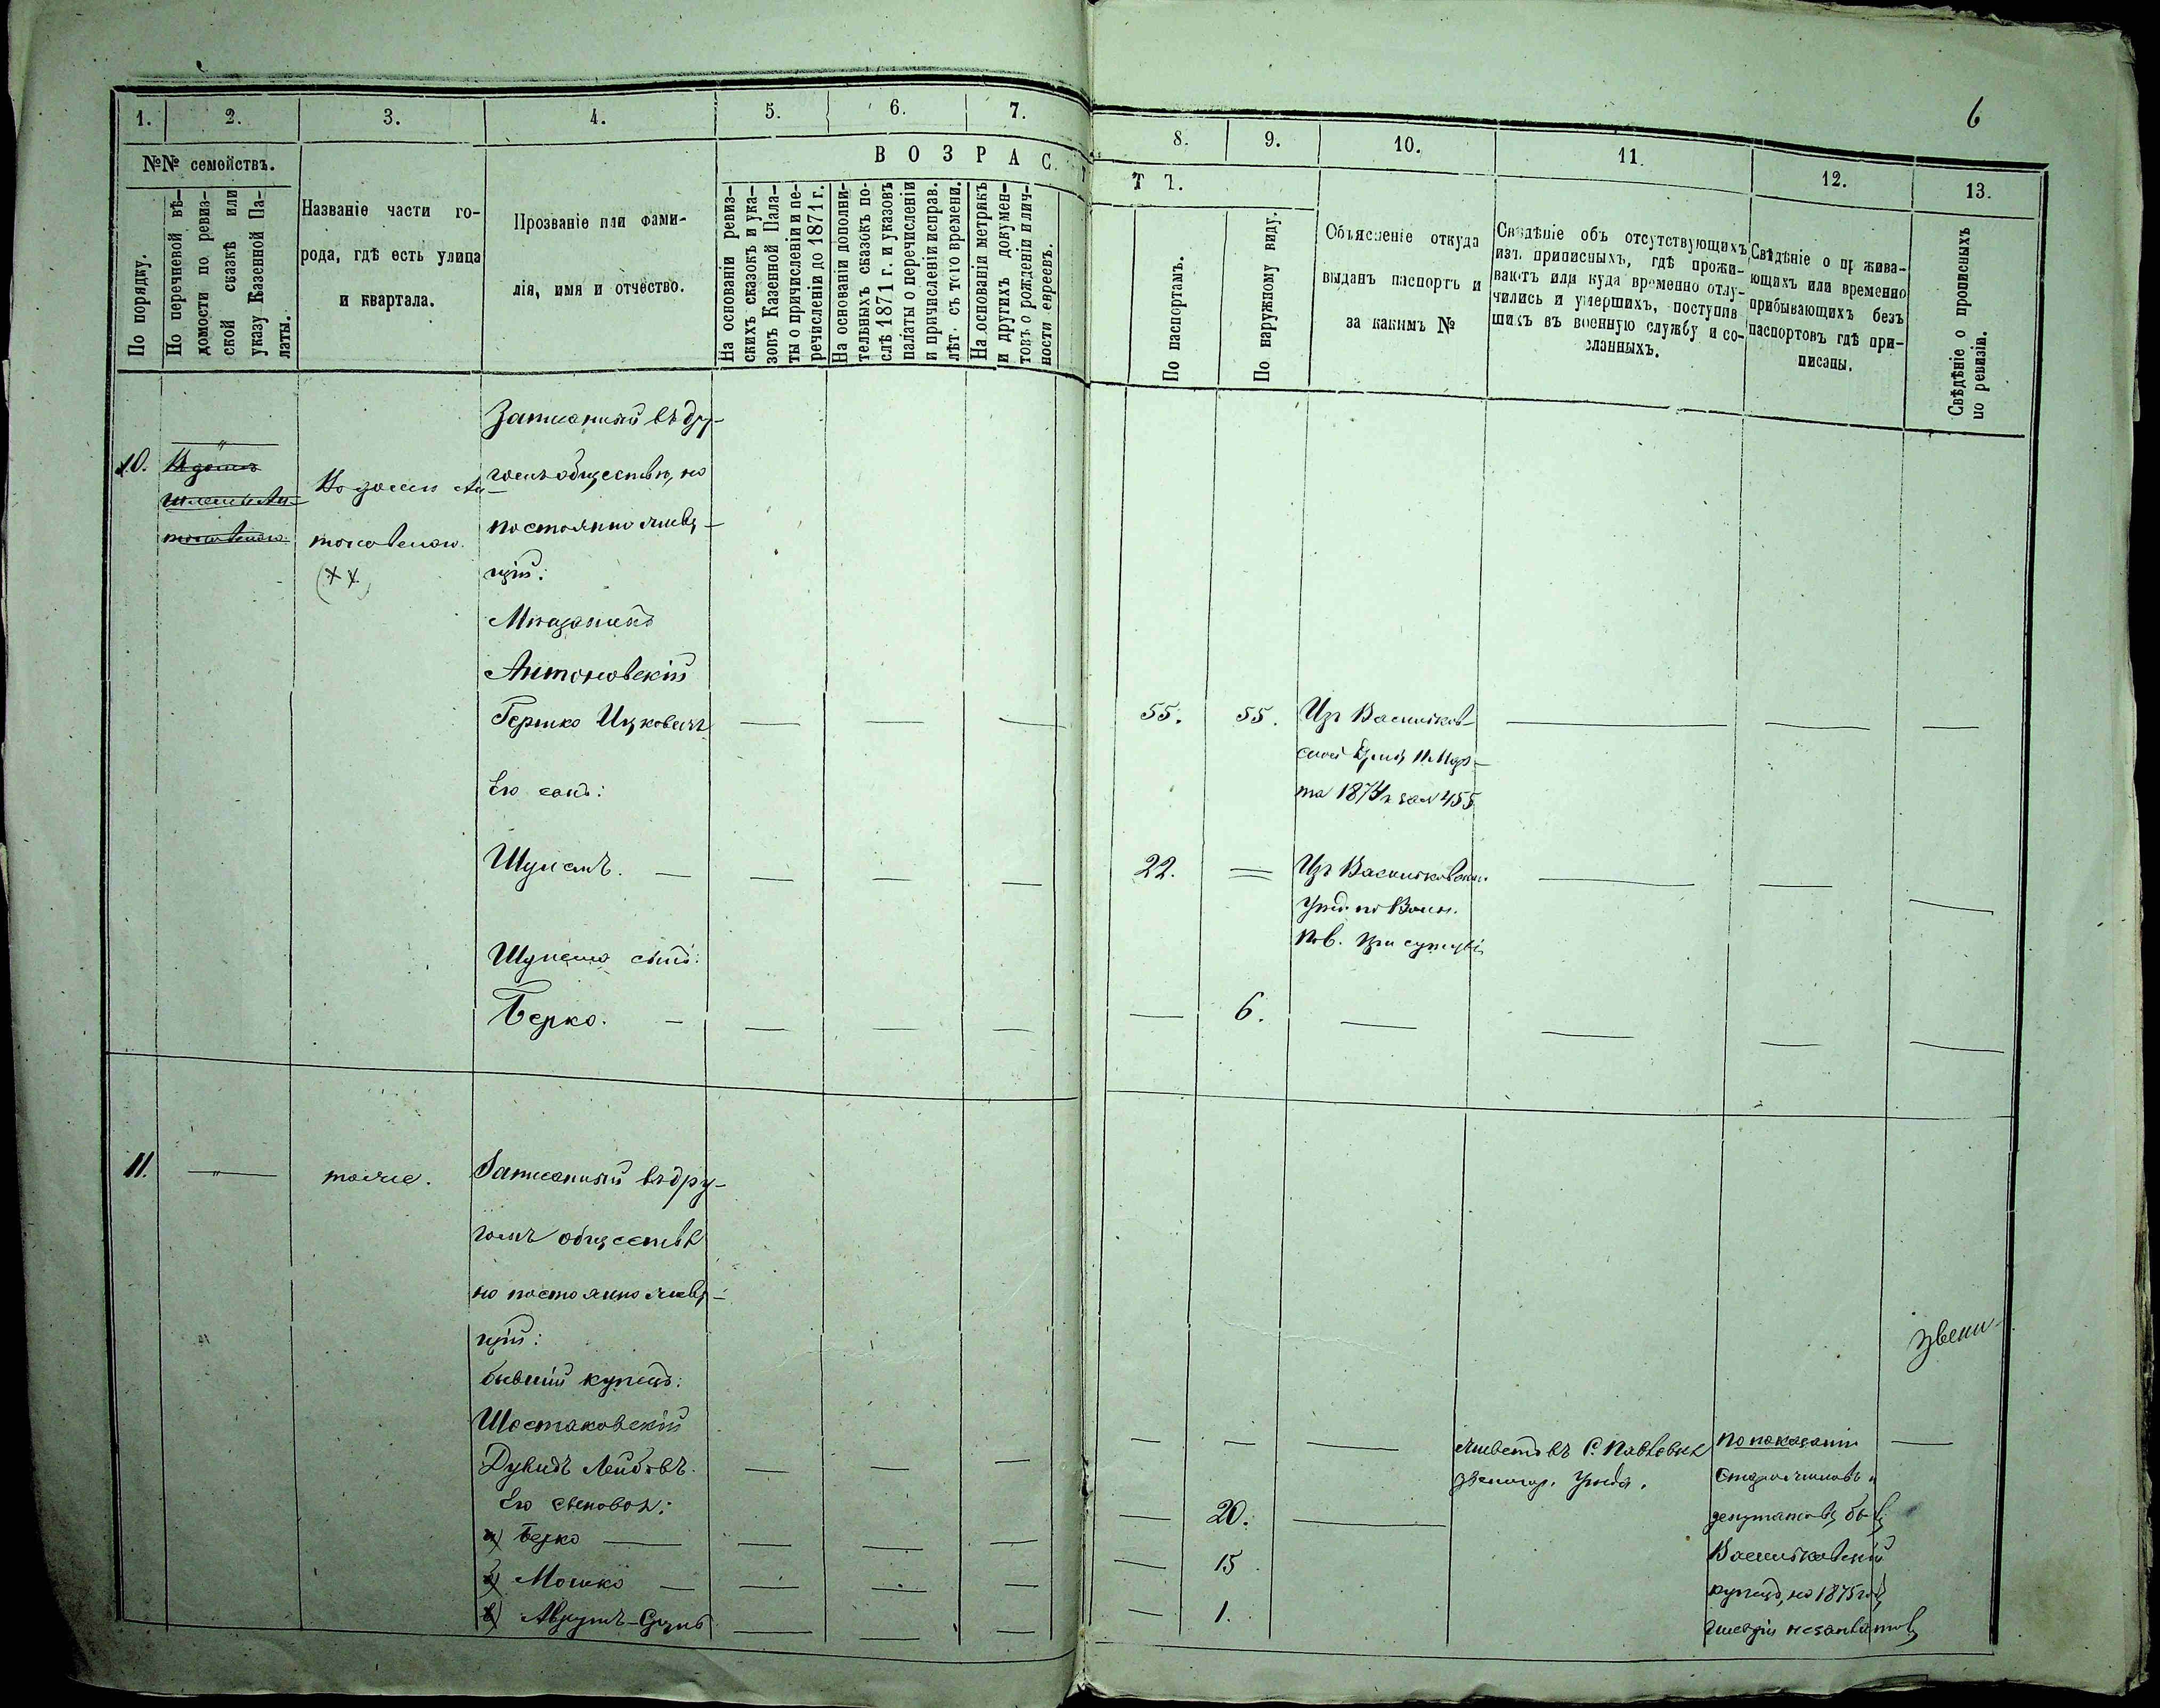 6
1. 2. 3. 4. 5. 6. 7.
8. 9. 10. 11. 12. 13.
№№ семействъ.
По порядку.
По перечневой вѣ-
домости по ревиз-
ской сказкѣ или
указу Казенной Па-
латы.
Названіе части го-
рода, гдѣ есть улица
и квартала.
Прозваніе или фами-
лія, имя и отчество.
ВОЗРАС
ТЪ.
На основаніи ревиз-
скихъ сказокъ и ука-
зовъ Казенной Пала-
ты о причисленіи и пе-
речисленіи до 1871 г.
На основаніи дополни-
тельныхъ сказокъ по-
слѣ 1871 г. и указовъ
палаты о перечисленіи
и причисленіи исправ.
лѣт. съ того времени.
На основаніи метрикъ
и другихъ докумен-
товъ о рожденіи и лич-
ности евреевъ.
По паспортамъ.
По наружному виду.
Объясненіе откуда
выданъ паспортъ и
за какимъ №
Свѣдѣніе объ отсутствующихъ
изъ приписныхъ, гдѣ прожи-
ваютъ или куда временно отлу-
чились и умершихъ, поступив
шихъ въ военную службу и со-
сланныхъ.
Свѣдѣніе о прожива-
ющихъ или временно
прибывающихъ безъ
паспортовъ гдѣ при-
писаны.
Свѣдѣніе о прописныхъ
по ревизіи.
10.
Записанный въ дру-
гомъ обществѣ, но
постоянно живу-
щій:
Мѣщанинъ
Антоновскій
Гершко Ицковичъ 55. 55. Изъ Васильков-
1874 г за № 455
Его сынъ:
Шулемъ. 22. Изъ Васильковскаго
Шулема сынъ:
Берко. 6.
11. тоже. Записанный въ дру-
гомъ обществѣ
но постоянно живу-
щій:
бывшій купецъ:
Шостаковскій
Дувидъ Лейбовъ.
живетъ въ С. Павловкѣ
звеногор. уѣзда.
Его сыновья:
а) Берко 20.
б) Мошко 15
в) 1.
по показанію
Старожиловъ и
депутатовъ
Васильковскій
купецъ, на 1875
звени-